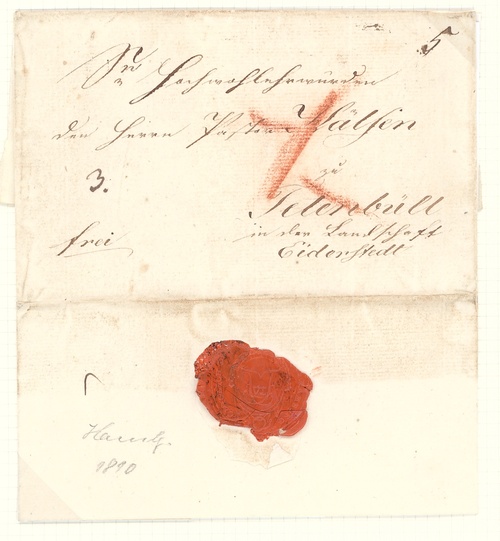 5
Sr Hochwohlehrwürden
den Herrn Pastor Wülfsen
3.
zu
Tetenbüll
frei
in der Landschaft
Eiderstedt
Hambg.
1810